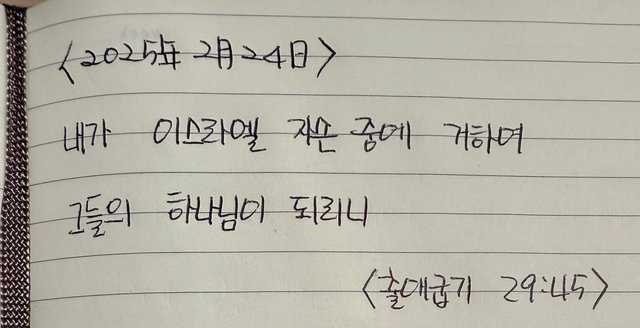 <2025年 2月 24日>
내가 이스라엘 자손 중에 거하여
그들의 하나님이 되리니
<출애굽기 29:45>